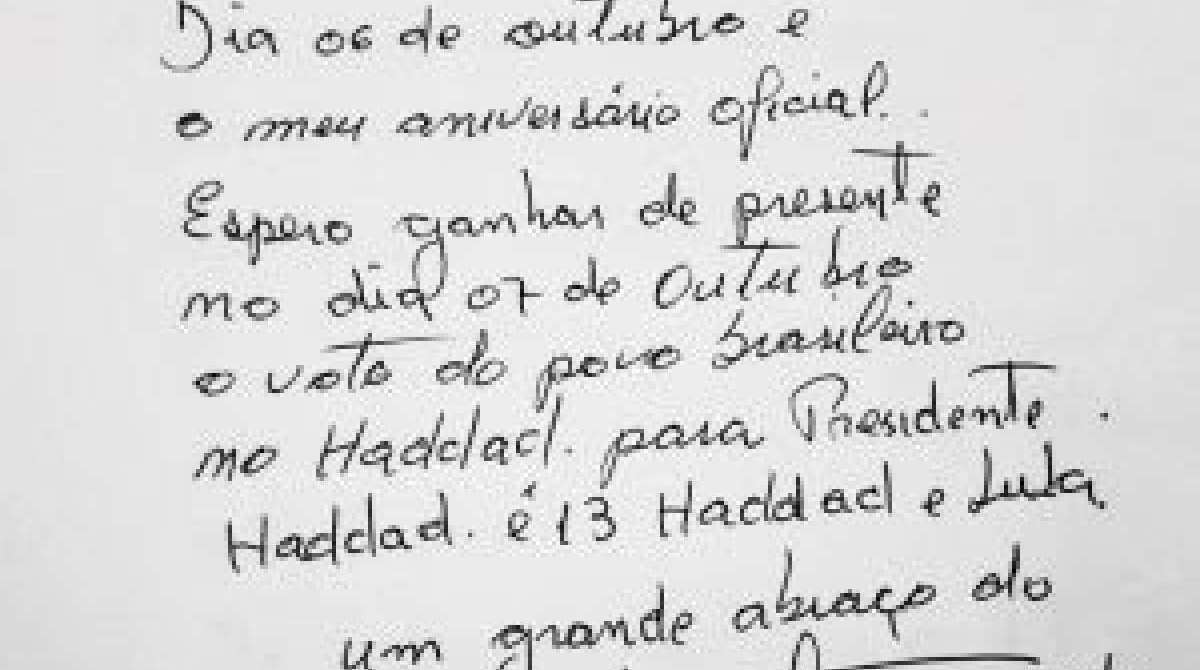 Dia 06 de outubro e
o meu aniversário oficial.
Espero ganhar de presente
no dia 07 de Outubro
o voto do povo brasileiro
no Haddad. para Presidente.
Haddad. é 13 Haddad e Lula
um grande abraço do